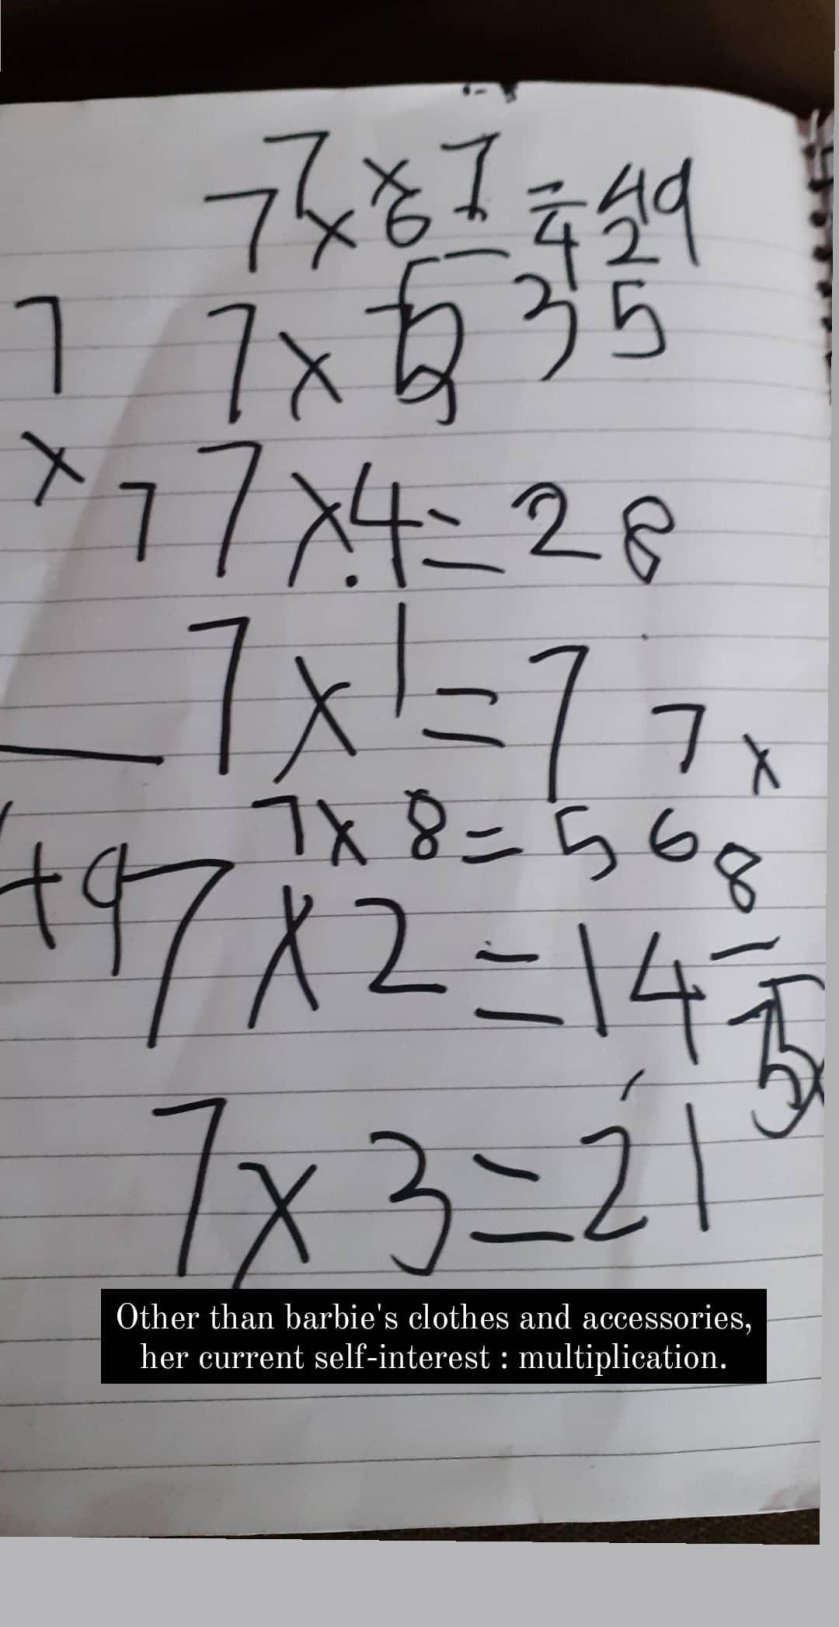 7 x 7 = 49
7 x 6 = 42
7 x 5 35
7 x 4 = 28
7
x 7
7 x 1 = 7
7 x
8
7 x 8 = 56
+9
7 x 2 = 14
7 x 3 = 21
Other than barbie's clothes and accessories,
her current self-interest : multiplication.